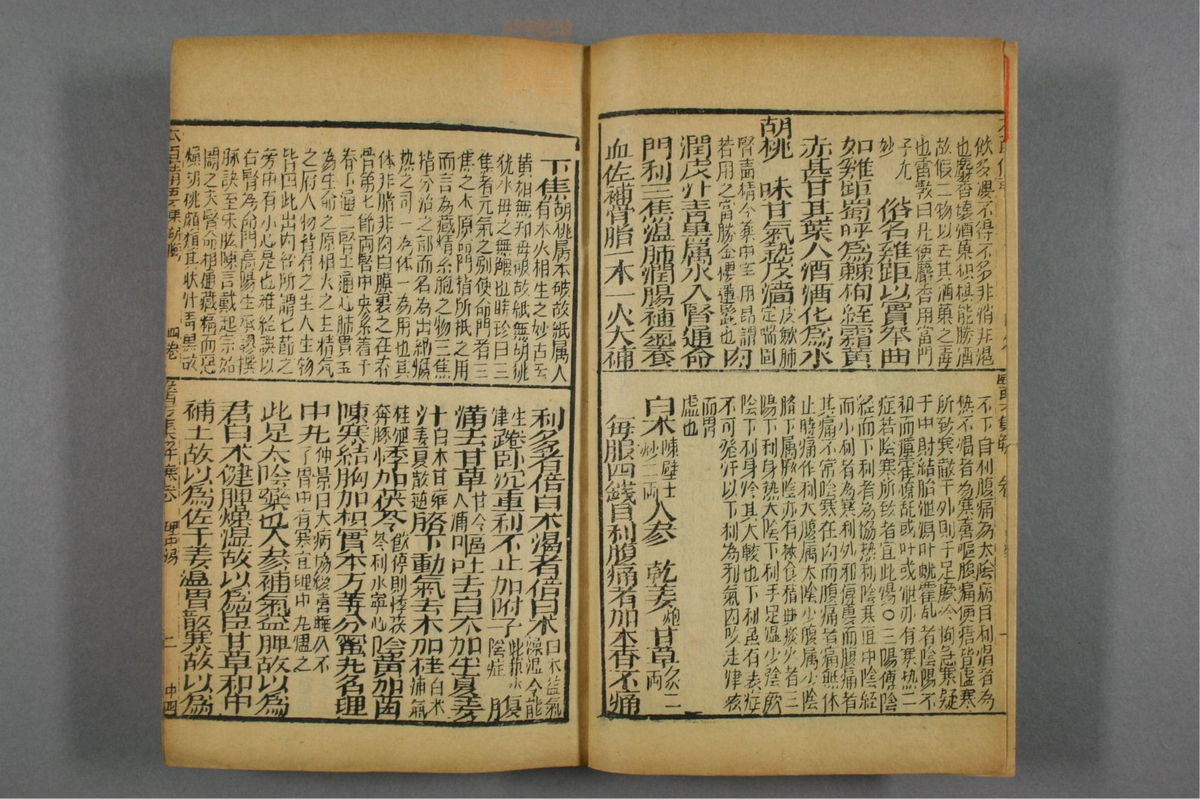 飲多溲不得不多非消非渴
也麝香壞酒菓枳椇能勝酒
故假二物以去其酒菓之毒
也雷斅曰凡使麝香用當門
子尤
妙　俗名雞距以實拳曲
如雞距蜀呼為棘枸經霜黃
赤甚甘其葉入酒酒化為水
胡桃　味甘氣熱皮濇皮歛肺定喘固
腎濇精今藥中罕用昂謂
若用之當勝金櫻蓮鬚也肉
潤皮汁青黑屬水入腎通命
門利三焦溫肺潤腸補氣養
血佐補骨脂一木一火大補
下焦胡桃屬木破故紙屬火
有木火相生之妙古云
黃柏無知母破故紙無胡桃
猶水母之無鰕也時珍曰三
焦者元氣之別使命門者三
焦之本原命門指所居之府
而言為藏精系胞之物三焦
指分治之部而名為出納腐
熟之司一為體一為用也其
體非脂非肉白膜裹之在脊
骨第七節兩腎中央系著于
脊下通二腎上通心肺貫腦
為生命之原相火之主精氣
之府人物皆有之生人生物
皆由此出內經所謂七節之
旁中有小心是也難經誤以
右腎為命門高陽生承謬撰
脉訣至朱肱陳言戴起宗始
闢之夫腎命相通藏精而惡
燥胡桃頗類其狀汁青黑故
不下自利腹痛為太陰病自利渴者為
熱不渴者為寒喜嘔腹痛便溏皆虛寒
所致寒獻于外則手足厥冷拘急寒凝
于中則結胎泄瀉吐蚘霍亂者陰陽不
和而揮霍撩亂或吐或瀉亦有寒熱二
症若陰寒所致者宜此湯〇三陽傳陰
經而下利者為協熱利陰寒直中陰經
而小利者為寒利外邪傳裏而腹痛者
其痛不常陰寒在內而腹痛者痛無休
止時痛作利大腹屬太陰少腹屬少陰
脇下屬厥陰亦有挾食積與痰火者三
陽下利身熱太陰下利手足溫少陰厥
陰下利身冷其大較也下利雖有表症
不可發汗以下利為邪氣內攻走津液
而胃
虛也
白朮陳壁土炒二兩人參　乾姜炮甘草炙各一兩
每服四錢自利腹痛者加木香不痛
利多者倍白朮渴者倍白朮白朮益氣燥溼令能
生津液踡臥沉重利不止加附子此挾水陰症腹
滿去甘草甘令人滿嘔吐去白朮加生夏姜
汁白朮甘壅姜夏散逆臍下動氣去朮加桂白朮補氣
桂泄奔豚悸加茯苓飲停則悸茯苓利水寧心陰黃加茵
陳寒結胸加枳實本方等分蜜丸名理
中丸仲景曰大病瘥後喜唾久不了胃中有寒宜理中丸溫之
此足太陰藥也人參補氣益脾故以為
君白朮健脾燥溼故以為臣甘草和中
補土故以為佐干姜溫胃散寒故以為
四卷
理中湯
二
中四